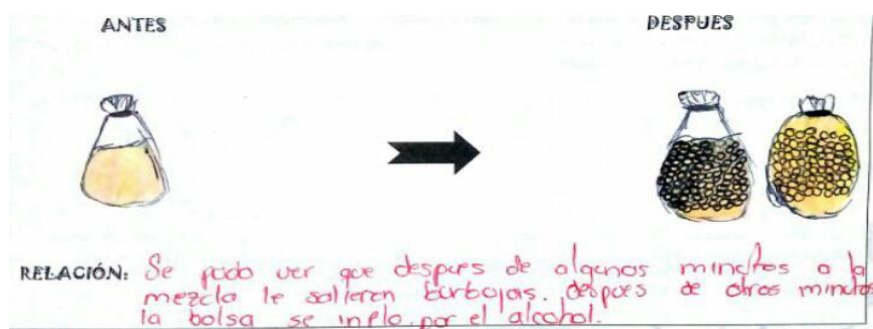 ANTES
DESPUES
RELACIÓN: Se pudo ver que despues de algunos minutos a la
mezcla le salieron burbojas. despues de otros minutos
la bolsa se inflo por el alcohol.